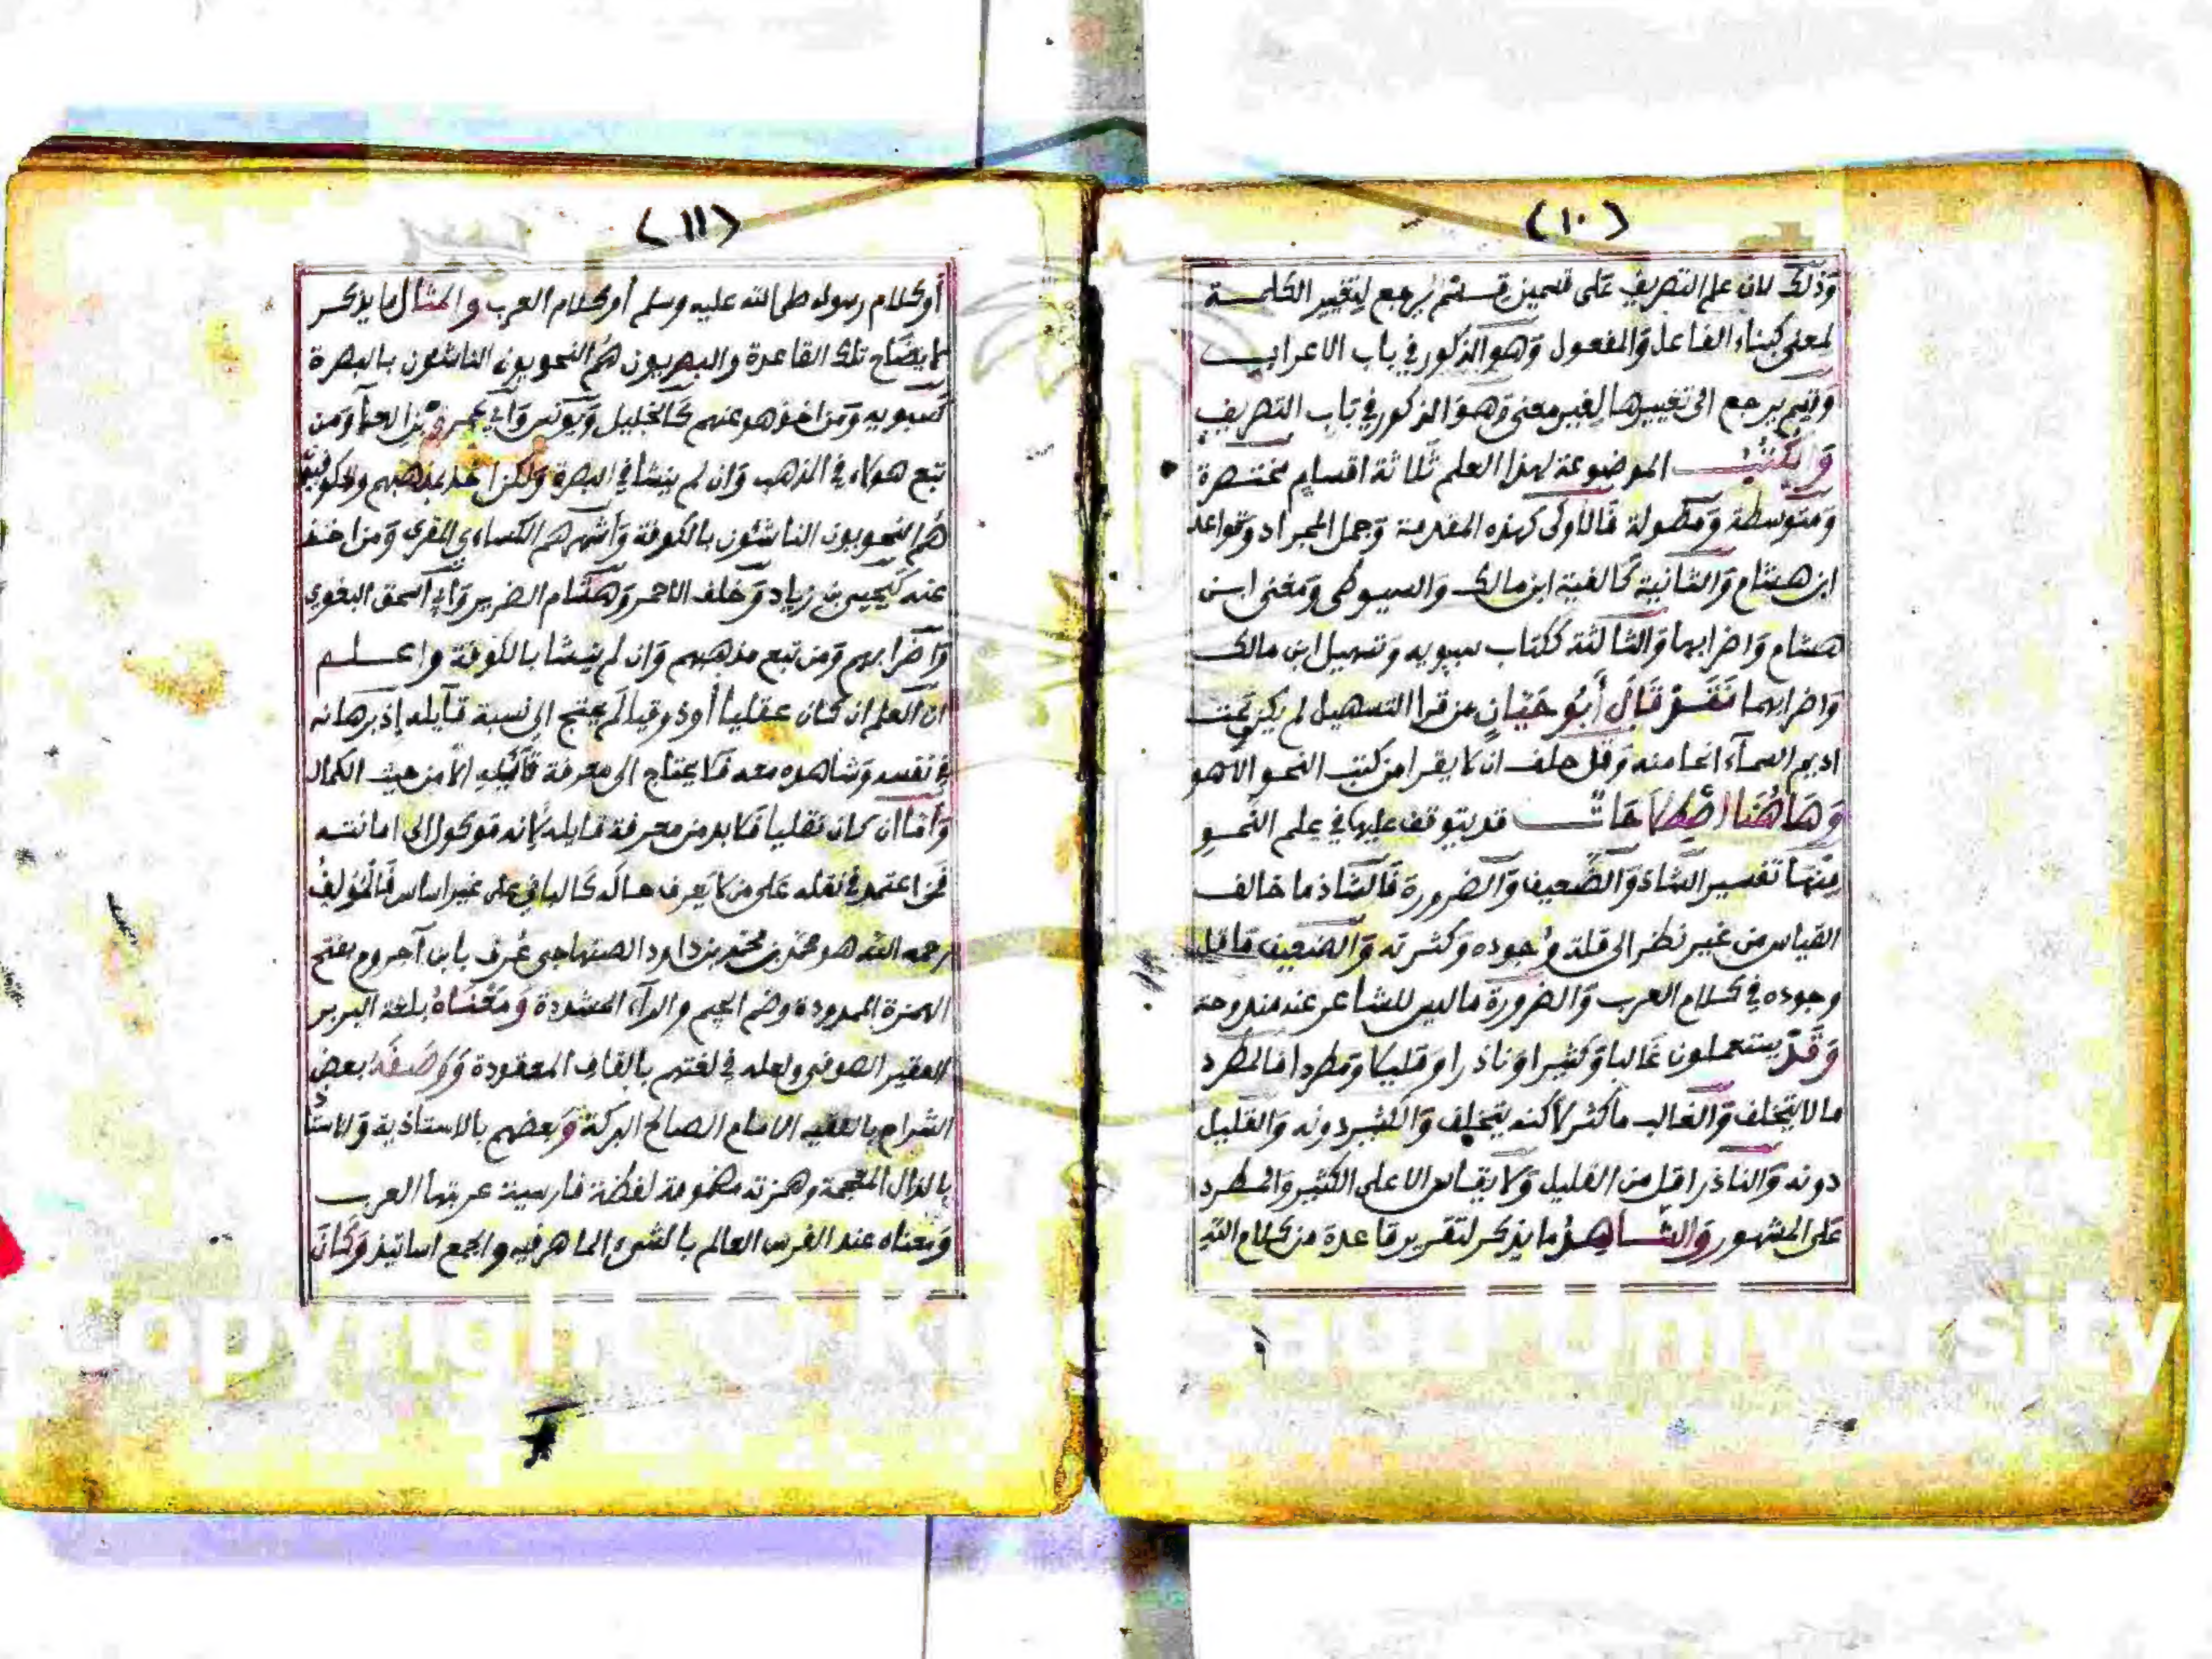 (١٠)
وذلك لان علم التصريف على قسمين قسم يرجع لتغيير الكلمة
لمعنى كبناء الفاعل والمفعول وهو المذكور في باب الاعراب
وقسم يرجع الى تغييرها لغير معنى وهو المذكور في باب التصريف
والكتب الموضوعة لهذا العلم ثلاثة اقسام مختصرة
ومتوسطة ومطولة فالاولى كهذه المقدمة وجمل المجراد وقواعد
ابن هشام والثانية كالفية ابن مالك والسيوطى ومغنى ابن
هشام واضرابها والثالثة ككتاب سيبويه وتسهيل ابن مالك
واضرابهما فقد قال أبو حيان من قرا التسهيل لم يكن تحت
اديم السماء انحا منه وقل حلف ان لا يقرا من كتب النحو الا هو
وهاهنا اصطلاحات قد يتوقف عليها في علم النحو
منها تفسير الشاذ والضعيف والضرورة فالشاذ ما خالف
القياس من غير نظر الى قلة وجوده وكثرته والضعيف ما قل
وجوده في كلام العرب والضرورة ما ليس للشاعر عنه مندوحة
وقد يستعملون غالبا وكثيرا وناذرا وقليلا ومطردا فالمطرد
ما لا يتخلف والغالب ما كثر لاكنه يتخلف والكثير دونه والقليل
دونه والناذر اقل من القليل ولا يقاس الا على الكثير والمطرد
على المشهور والشاهد ما يذكر لتقرير قاعدة من كلام الله
(١١)
أو كلام رسوله صلى الله عليه وسلم أو كلام العرب والمثال ما يذكر
لايضاح تلك القاعدة والبصريون هم النحويون الناشئون بالبصرة
كسيبويه ومن اخذ هو عنهم كالخليل ويونس وابي عمرو بن العلا ومن
تبع هولاء في المذهب وان لم ينشا في البصرة ولكن اخذ بمذهبهم والكوفيون
هم النحويون الناشئون بالكوفة وأشهرهم الكساءي المقري ومن اخذ
عنه كيحيى بن زياد وخلف الاحمر وهشام الضرير وابي اسحق البغوي
واضرابهم ومن تبع مذهبهم وان لم ينشا بالكوفة واعلم
ان العلم ان كان عقليا أو ذوقيا لم يحتج الى نسبة قايله إذ برهانه
في نفسه وشاهده معه فلا يحتاج الى معرفة قايله الا من حيث الكمال
وأما ان كان نقليا فلا بد من معرفة قايله لانه موكول الى امانته
فمن اعتمد في نقله على من لا يعرف حاله كالباني على غير اساس فالمؤلف
رحمه الله هو محمد بن محمد بن داود الصنهاجي عرف بابن آجروم بفتح
الهمزة الممدودة وضم الجيم والراء المشددة ومعناه بلغة البربر
الفقير الصوفي ولعله في لغتهم بالقاف المعقودة ووصفه بعض
الشراح بالفقيه الامام الصالح البركة وبعضهم بالاستاذية والاستاذ
بالذال المعجمة وهمزته مضمومة لفظة فارسية عربتها العرب
ومعناه عند الفرس العالم بالشيء الماهر فيه والجمع اساتيذ وكان
Copyright © King Saud University